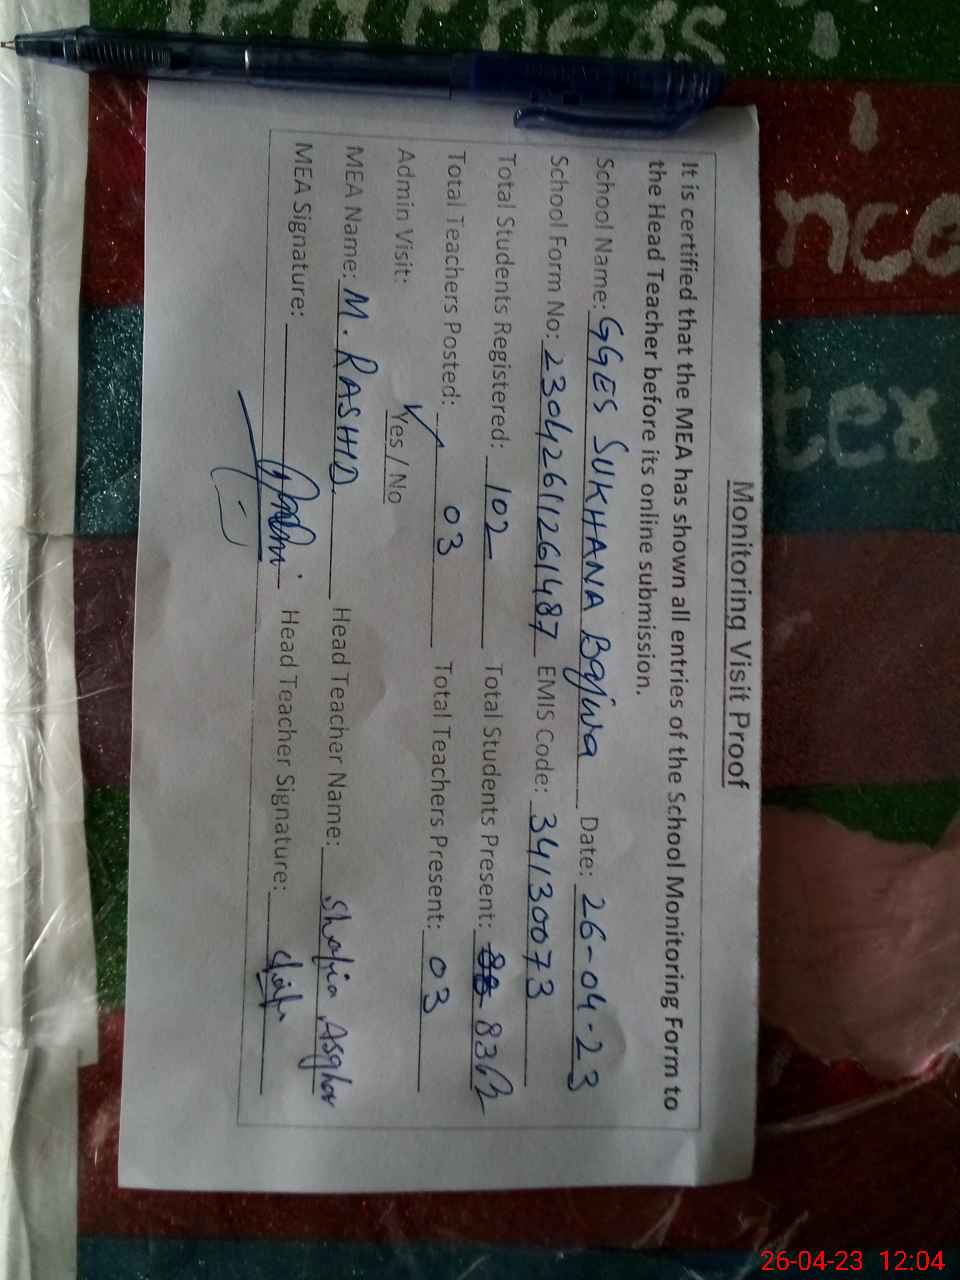 Monitoring Visit Proof
It is certified that the MEA has shown all entries of the School Monitoring Form to
the Head Teacher before its online submission.
School Name: GGES SUKHANA Bajwa Date: 26-04-23
School Form No: 23042611261487 EMIS Code: 34130073
Total Students Registered: 102 Total Students Present: 88 83
Total Teachers Posted: 03 Total Teachers Present: 03
Admin Visit: Yes / No
MEA Name: M. RASHID. Head Teacher Name: Shafia Asghar
MEA Signature: Head Teacher Signature:
26-04-23 12:04